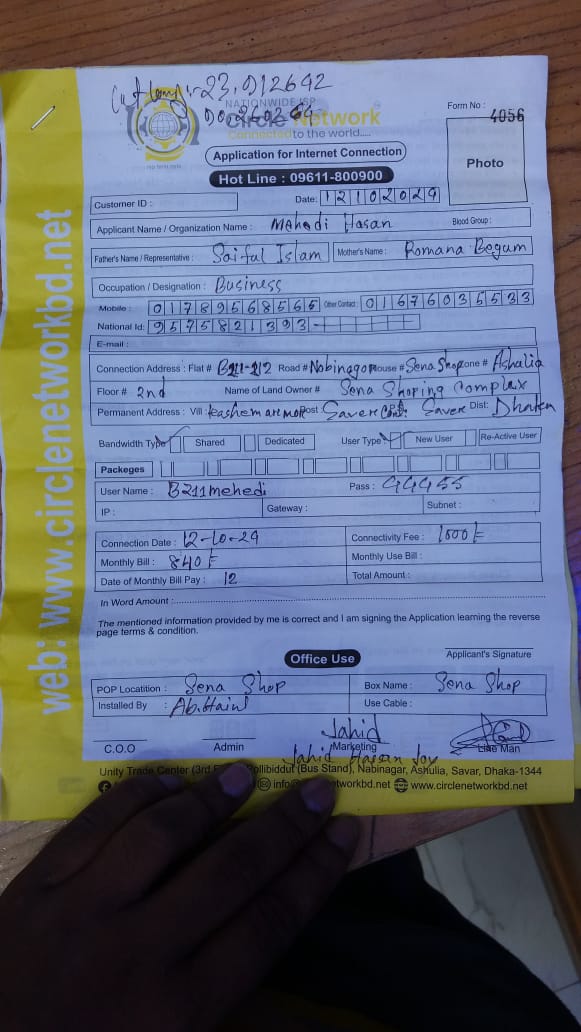 23.912642
NATIONWIDE ISP
90.269264
Circle Network
Connected to the world.....
Form No : 4056
Photo
Application for Internet Connection
Hot Line : 09611-800900
Customer ID :
Date: 12102024
Applicant Name / Organization Name : Mehedi Hasan Blood Group :
Father's Name / Representative : Saiful Islam Mother's Name : Romana Begum
Occupation / Designation : Business
Mobile : 01789568565 Other Contact : 01676035533
National Id: 9575821393
E-mail :
Connection Address : Flat # B211-212 Road # Nobinagor House # Sena Shop Zone # Ashalia
Floor # 2nd Name of Land Owner # Sena Shoping Complax
Permanent Address : Vill : Post : Saver Cant. P.S: Saver Dist: Dhaka
Bandwidth Type Shared Dedicated User Type New User Re-Active User
Packeges
User Name : B211mehedi Pass : 44455
IP : Gateway : Subnet :
Connection Date : 12-10-24 Connectivity Fee : 1000/=
Monthly Bill : 840/= Monthly Use Bill :
Date of Monthly Bill Pay : 12 Total Amount :
In Word Amount :
The mentioned information provided by me is correct and I am signing the Application learning the reverse
page terms & condition.
Applicant's Signature
Office Use
POP Locatition : Sena Shop Box Name : Sena Shop
Installed By : Use Cable :
Jahid
C.O.O Admin Marketing Line Man
Jahid Hasan Joy
Unity Trade Center (3rd Pollibiddut (Bus Stand), Nabinagar, Ashulia, Savar, Dhaka-1344
www.circlenetworkbd.net
web: www.circlenetworkbd.net